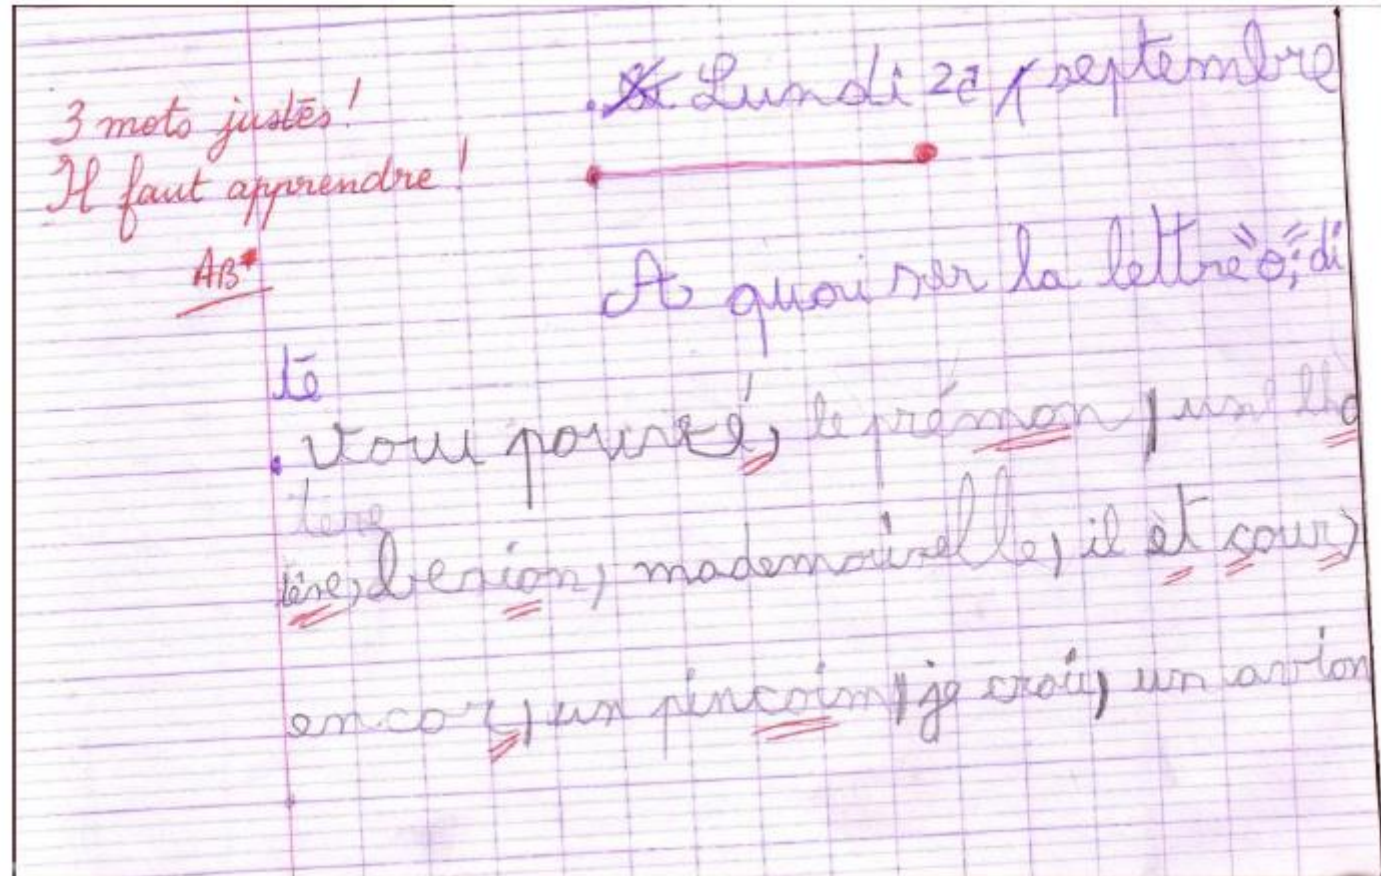 3 mots justes!
Il faut apprendre!
AB
Lundi septembre
A quoi ser la lettre "e", di
té
vous pouvé, le prémon, un
tere
ière, bension, mademoiselle, il èt cour,
encor, un pincoim, je crois, un avion